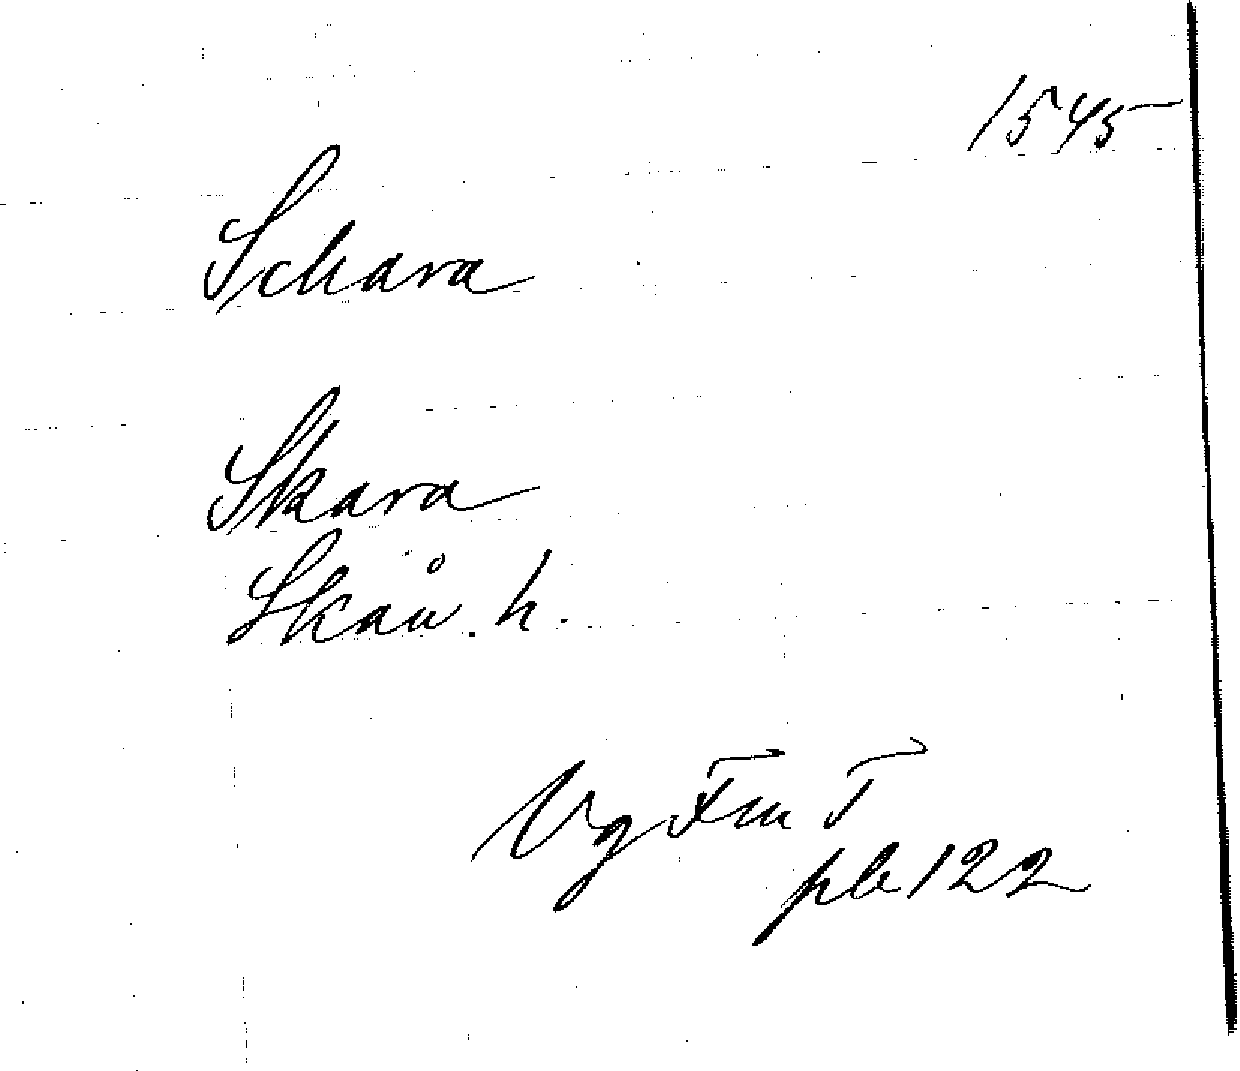 1545
Schara
Skara
Skån. h.
Vg Fm T
pl 122